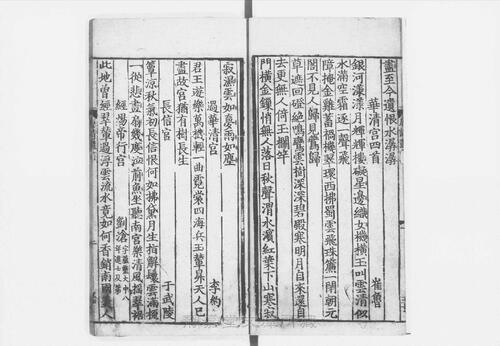 盡至今遺恨水潺潺
華清宮四首 崔魯
銀河漾漾月輝輝樓礙星邊織女機橫玉叫雲清似
水滿空霜逐一聲飛
障掩金雞蓄禍機翠環西拂蜀雲飛珠簾一閉朝元
閣不見人歸見鷰歸
草遮回磴絕鳴鸞雲樹深深碧殿寒明月自來還自
去更無人倚玉欄干
門橫金鏁悄無人落日秋聲渭水濱紅葉下山寒寂
寂濕雲如夢雨如塵
過華清宮 李約
君王遊樂萬機輕一曲霓裳四海兵玉輦昇天人已
盡故宮猶有樹長生
長信宮 于武陵
簟涼秋氣初長信恨何如拂黛月生指解鬟雲滿梳
一從悲畫扇幾度泣前魚坐聽南宮樂清風搖翠裾
經煬帝行宮 劉滄 字蘊靈大中八年進士及第
此地曾經翠輦過浮雲流水竟如何香銷南國美人